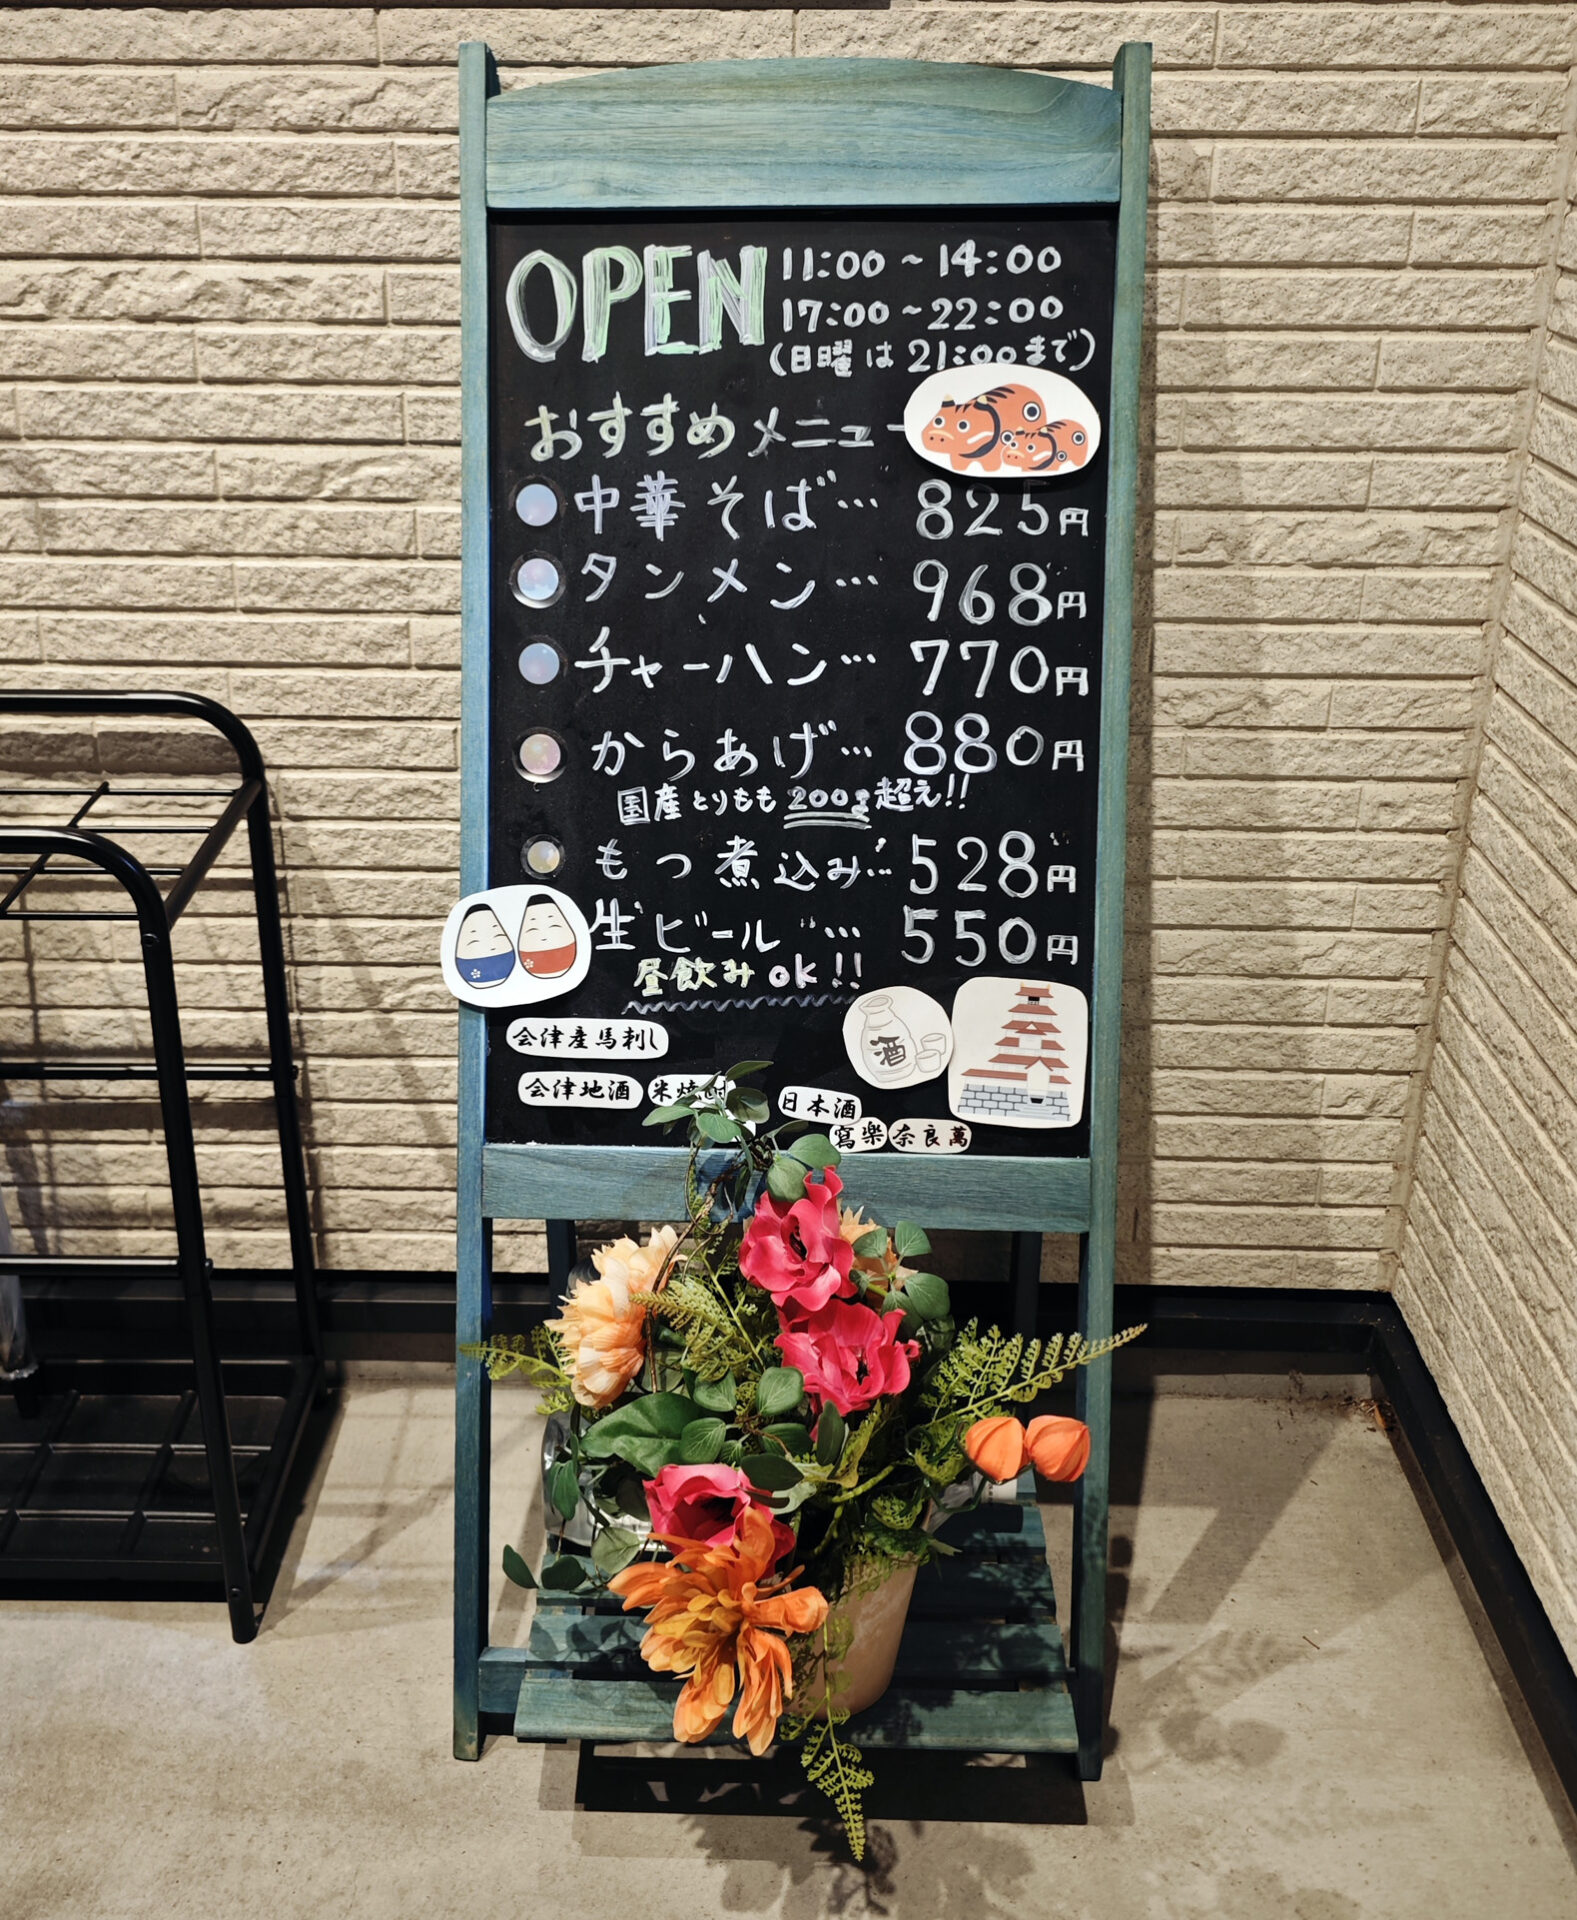 OPEN 11:00~14:00
17:00~22:00
(日曜は21:00まで)
おすすめメニュー
中華そば… 825円
タンメン… 968円
チャーハン… 770円
からあげ… 880円
国産とりもも200g超え!!
もつ煮込み… 528円
生ビール… 550円
昼飲みok!!
会津産馬刺し
酒
会津地酒 米焼酎 日本酒
寫楽 奈良萬